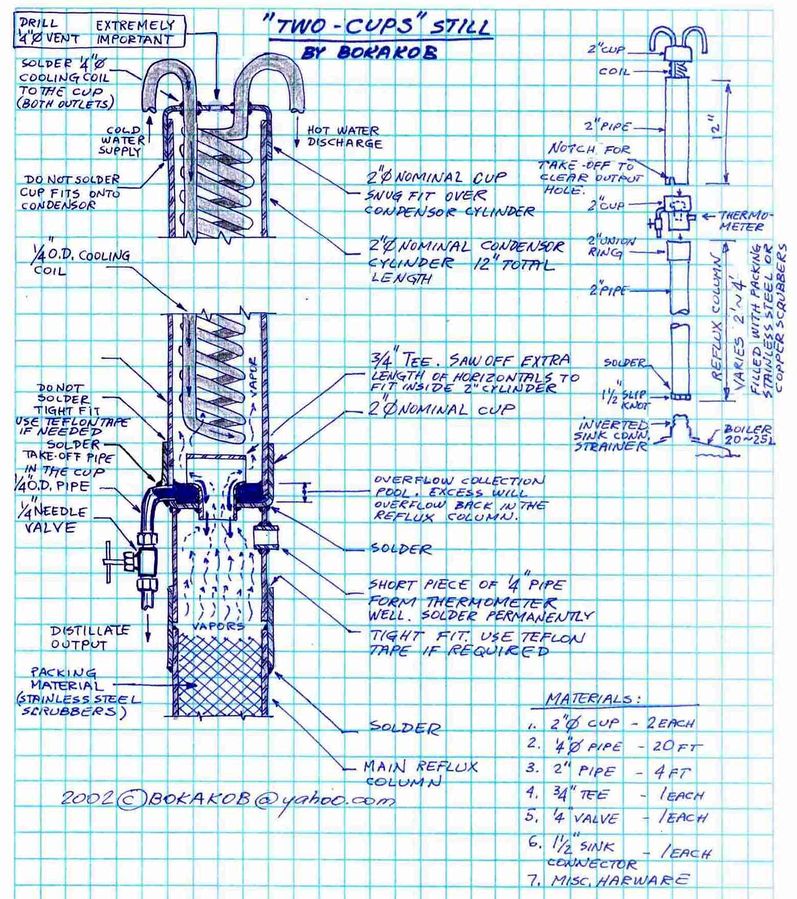 "TWO-CUPS" STILL
BY BOKAKOB
DRILL
1/4"Ø VENT
EXTREMELY
IMPORTANT
SOLDER 1/4"Ø
COOLING COIL
TO THE CUP
(BOTH OUTLETS)
COLD
WATER
SUPPLY
HOT WATER
DISCHARGE
DO NOT SOLDER
CUP FITS ONTO
CONDENSOR
2"Ø NOMINAL CUP
SNUG FIT OVER
CONDENSOR CYLINDER
1/4" O.D. COOLING
COIL
2"Ø NOMINAL CONDENSOR
CYLINDER 12" TOTAL
LENGTH
VAPOR
3/4" TEE. SAW OFF EXTRA
LENGTH OF HORIZONTALS TO
FIT INSIDE 2" CYLINDER
2"Ø NOMINAL CUP
DO NOT
SOLDER
TIGHT FIT
USE TEFLON TAPE
IF NEEDED
SOLDER
TAKE-OFF PIPE
IN THE CUP
1/4" O.D. PIPE
1/4" NEEDLE
VALVE
OVERFLOW COLLECTION
POOL. EXCESS WILL
OVERFLOW BACK IN THE
REFLUX COLUMN.
SOLDER
SHORT PIECE OF 1/4" PIPE
FORM THERMOMETER
WELL. SOLDER PERMANENTLY
TIGHT FIT. USE TEFLON
TAPE IF REQUIRED
VAPORS
DISTILLATE
OUTPUT
PACKING
MATERIAL
(STAINLESS STEEL
SCRUBBERS)
SOLDER
MAIN REFLUX
COLUMN
2002 © BOKAKOB@yahoo.com
2" CUP
COIL
2" PIPE
12"
NOTCH FOR
TAKE-OFF TO
CLEAR OUTPUT
HOLE.
2" CUP
THERMO-
METER
2" UNION
RING
2" PIPE
REFLUX COLUMN
VARIES 2'~4'
FILLED WITH PACKING
STAINLESS STEEL OR
COPPER SCRUBBERS
SOLDER
1 1/2" SLIP
KNOT
INVERTED
SINK CONN.
STRAINER
BOILER
20~25L
MATERIALS:
1. 2"Ø CUP - 2 EACH
2. 1/4"Ø PIPE - 20 FT
3. 2" PIPE - 4 FT
4. 3/4" TEE - 1 EACH
5. 1/4" VALVE - 1 EACH
6. 1 1/2" SINK
CONNECTOR - 1 EACH
7. MISC. HARWARE